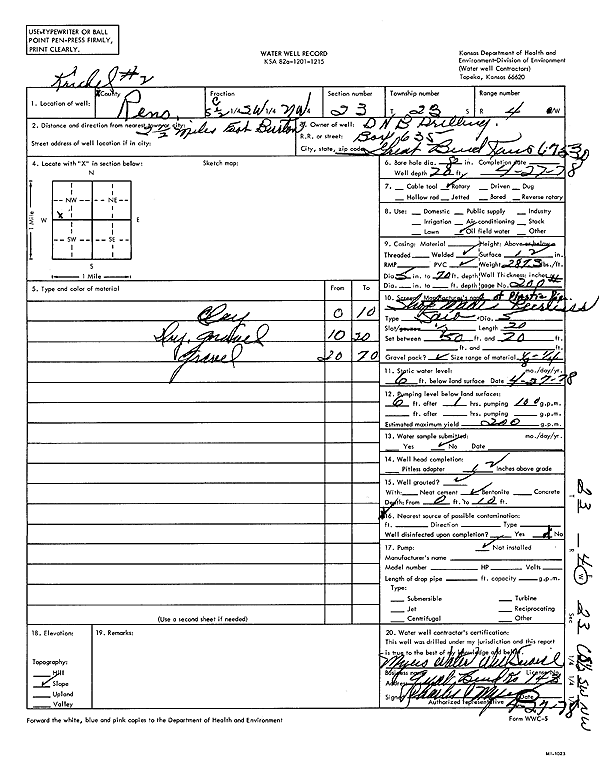 USE TYPEWRITER OR BALL
POINT PEN-PRESS FIRMLY,
PRINT CLEARLY.
WATER WELL RECORD
KSA 82a-1201-1215
Kansas Department of Health and
Environment-Division of Environment
(Water well Contractors)
Topeka, Kansas 66620
#2
1. Location of well: County Reno Fraction 1/4 SW 1/4 NW 1/4 Section number 23 Township number T 23 S Range number R 4 W
2. Distance and direction from nearest town or city: Miles East
Street address of well location if in city:
3. Owner of well: DNB Drilling.
R.R. or street: Box 635
City, state, zip code: Great Bend Kans 67530
4. Locate with "X" in section below: Sketch map:
N
NW NE
X
W E
SW SE
S
1 Mile
1 Mile
5. Type and color of material From To
Clay 0 10
10 20
Gravel 20 70
(Use a second sheet if needed)
6. Bore hole dia. 8 in. Completion date
Well depth 70 ft. 4-27-78
7. Cable tool ✓ Rotary Driven Dug
Hollow rod Jetted Bored Reverse rotary
8. Use: Domestic Public supply Industry
Irrigation Air conditioning Stock
Lawn ✓ Oil field water Other
9. Casing: Material Height: Above or below
Threaded Welded ✓ Surface 12 in.
RMP PVC ✓ Weight lbs./ft.
Dia. 5 in. to 70 ft. depth Wall Thickness: inches or
Dia. in. to ft. depth gage No. 200#
10. Screen: Manufacturer's name
Type Dia. 5
Slot/gauze Length 20
Set between 50 ft. and 70 ft.
ft. and ft.
Gravel pack? ✓ Size range of material
11. Static water level: mo./day/yr.
6 ft. below land surface Date 4-27-78
12. Pumping level below land surfaces:
6 ft. after 1 hrs. pumping 100 g.p.m.
ft. after hrs. pumping g.p.m.
Estimated maximum yield 200 g.p.m.
13. Water sample submitted: mo./day/yr.
Yes ✓ No Date
14. Well head completion:
Pitless adapter 12 Inches above grade
15. Well grouted? ✓
With: Neat cement ✓ Bentonite Concrete
Depth: From 0 ft. to 10 ft.
16. Nearest source of possible contamination:
ft. Direction Type
Well disinfected upon completion? Yes No
17. Pump: ✓ Not installed
Manufacturer's name
Model number HP Volts
Length of drop pipe ft. capacity g.p.m.
Type:
Submersible Turbine
Jet Reciprocating
Centrifugal Other
18. Elevation:
Topography:
Hill
✓ Slope
Upland
Valley
19. Remarks:
20. Water well contractor's certification:
This well was drilled under my jurisdiction and this report
is true to the best of my knowledge and belief.
Myers Water Well
Business name License No.
Address Great Bend
Signed Charles Myers Date 4-27-78
Authorized representative
Forward the white, blue and pink copies to the Department of Health and Environment
Form WWC-5
MI-1023
T 23 R 4 W Sec 23 SW NW
1/4 1/4 1/4